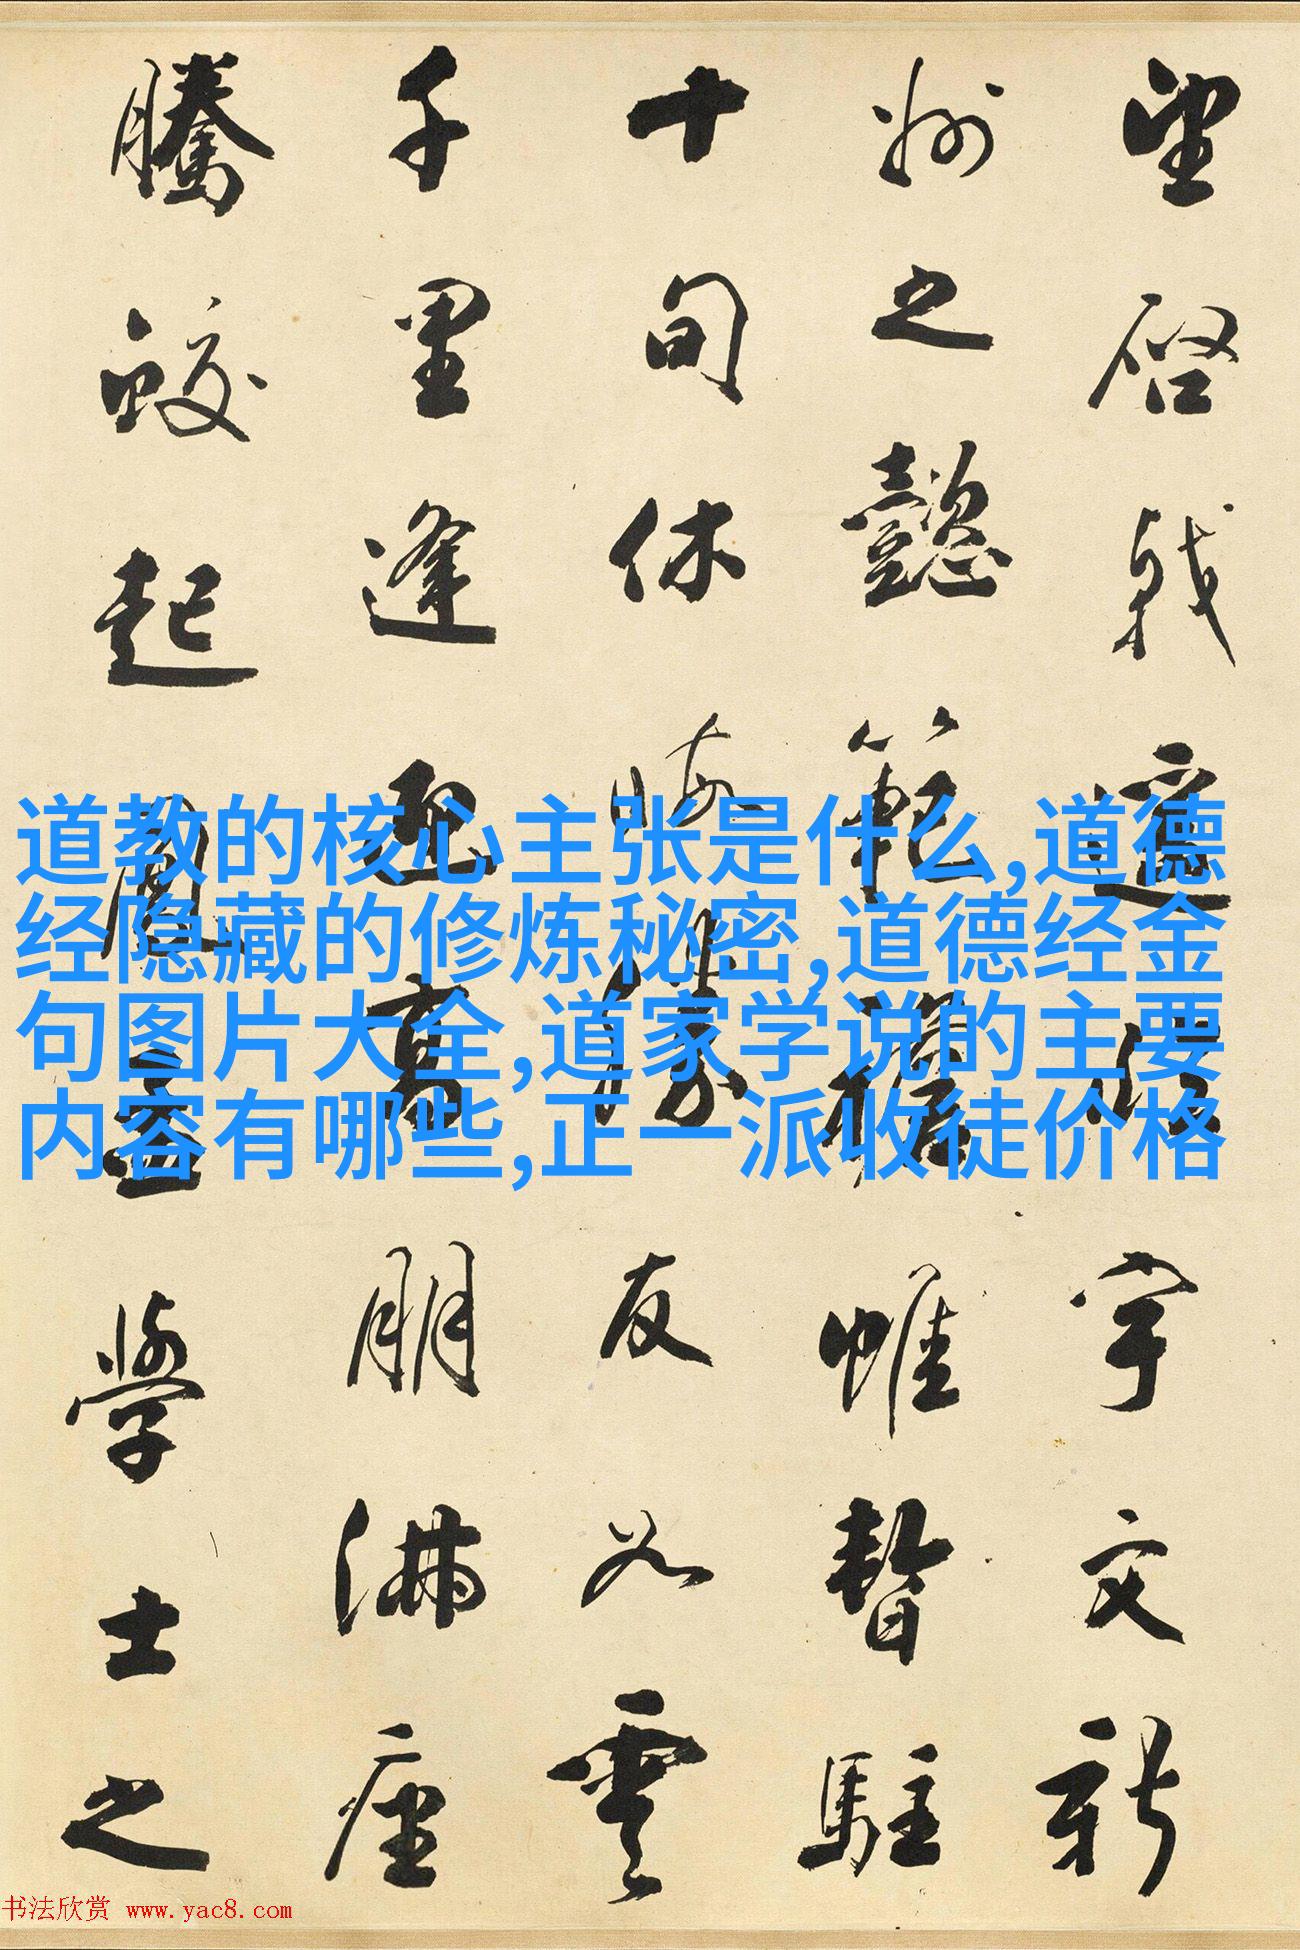 望啓戟遙臨宇文新
州之懿範襜帷暫駐
十旬休勝友如雲
千里逢迎高朋滿座
騰蛟起鳳孟學士之
道教的核心主张是什么,道德
经隐藏的修炼秘密,道德经金
句图片大全,道家学说的主要
内容有哪些,正一派收徒价格
书法欣赏 www.yac8.com